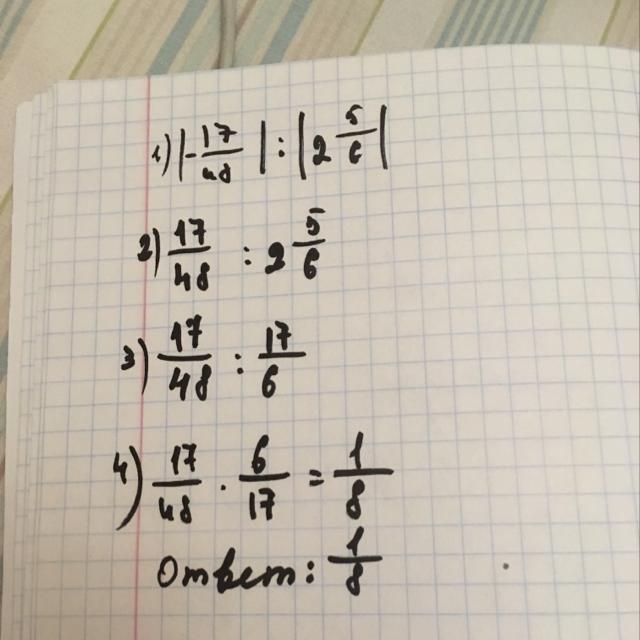 1) |-17/48| : |2 5/6|
2) 17/48 : 2 5/6
3) 17/48 : 17/6
4) 17/48 · 6/17 = 1/8
Ответ: 1/8